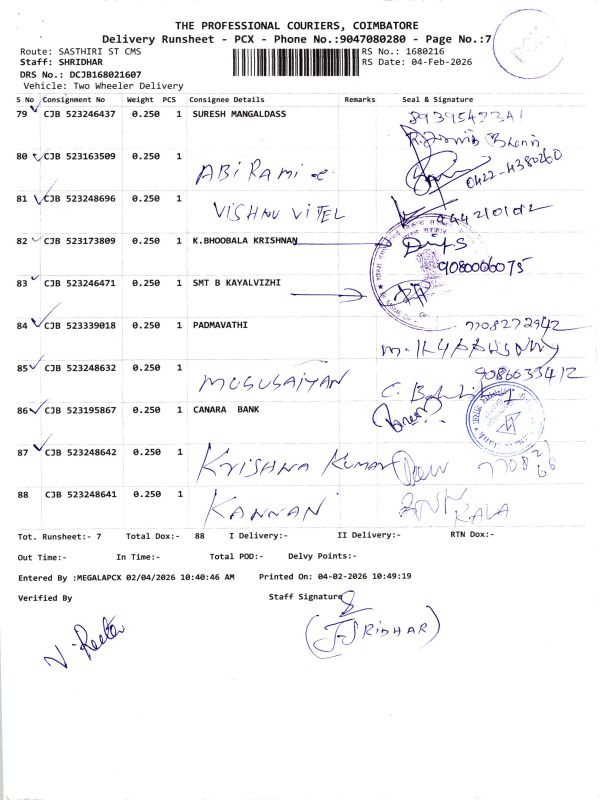 THE PROFESSIONAL COURIERS, COIMBATORE
Delivery Runsheet - PCX - Phone No.:9047080280 - Page No.:7
PCX
Route: SASTHIRI ST CMS
RS No.: 1680216
Staff: SHRIDHAR
RS Date: 04-Feb-2026
DRS No.: DCJB168021607
Vehicle: Two Wheeler Delivery
S No Consignment No Weight PCS Consignee Details Remarks Seal & Signature
79 CJB 523246437 0.250 1 SURESH MANGALDASS
80 CJB 523163509 0.250 1 ABiRami
0422-4380260
81 CJB 523248696 0.250 1 VISHNU VITEL
82 CJB 523173809 0.250 1 K.BHOOBALA KRISHNAN
9080006075
83 CJB 523246471 0.250 1 SMT B KAYALVIZHI
84 CJB 523339018 0.250 1 PADMAVATHI 7708272942
85 CJB 523248632 0.250 1 9086033412
86 CJB 523195867 0.250 1 CANARA BANK
87 CJB 523248642 0.250 1 KRISHNA KUMAR
88 CJB 523248641 0.250 1 KANNAN KALA
Tot. Runsheet:- 7 Total Dox:- 88 I Delivery:- II Delivery:- RTN Dox:-
Out Time:- In Time:- Total POD:- Delvy Points:-
Entered By :MEGALAPCX 02/04/2026 10:40:46 AM Printed On: 04-02-2026 10:49:19
Verified By Staff Signature
(J.SRIDHAR)